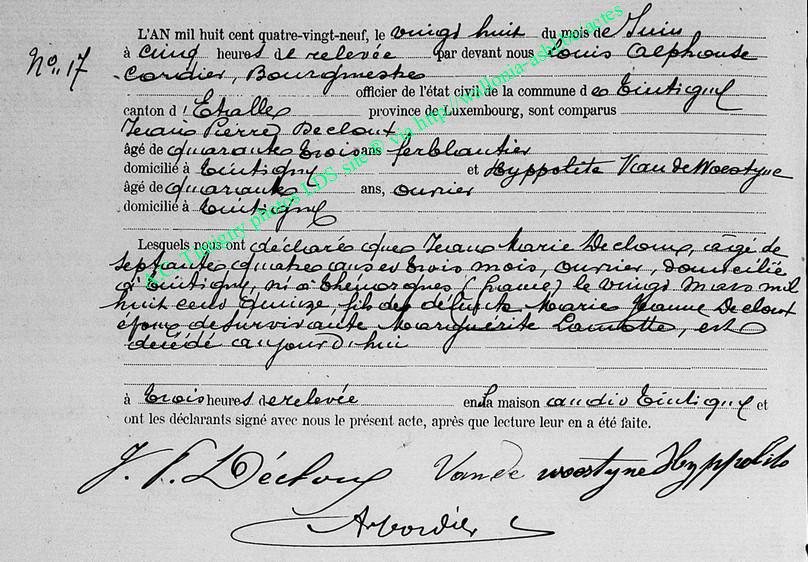 No. 17
L'AN mil huit cent quatre-vingt-neuf, le vingt huit du mois de Juin
à cinq heures de relevée par devant nous Louis Alphonse
Cordier, Bourgmestre
officier de l'état civil de la commune de Tintigny
canton d'Etalle province de Luxembourg, sont comparus
Jean Pierre Decloux
âgé de quarante trois ans ferblantier
domicilié à Tintigny et Hyppolite Van de Woestyne
âgé de quarante ans, ouvrier
domicilié à Tintigny
Lesquels nous ont déclaré que Jean Marie Decloux, âgé de
septante quatre ans et trois mois, ouvrier, domicilié
à Tintigny, né à (france) le vingt mars mil
huit cent quinze, fils de défunte Marie Jeanne Decloux
époux de survivante Marguérite Lamotte, est
décédé aujourd'hui
à trois heures de relevée en la maison audit Tintigny et
ont les déclarants signé avec nous le présent acte, après que lecture leur en a été faite.
J. P. Décloux Van de woestyne Hyppolite
Cordier
A.C. Tintigny photos LDS. site © via http://wallonia-asbl.be/actes